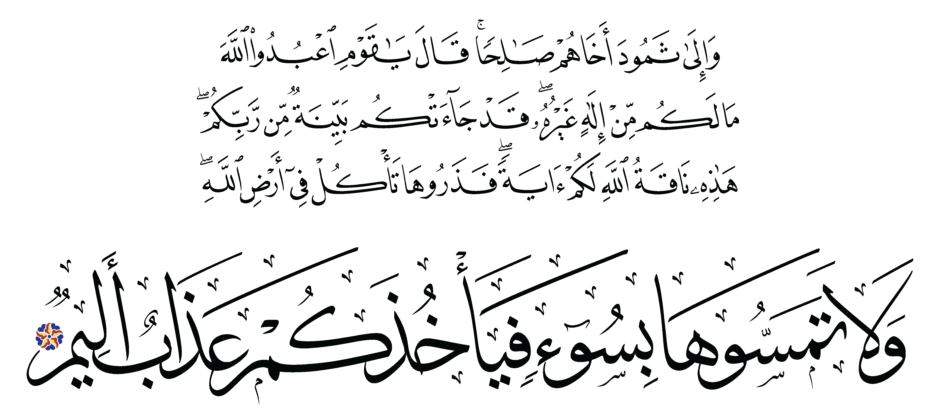 وَإِلَىٰ ثَمُودَ أَخَاهُمْ صَـٰلِحًا ۚ قَالَ يَـٰقَوْمِ ٱعْبُدُوا۟ ٱللَّهَ
مَا لَكُم مِّنْ إِلَـٰهٍ غَيْرُهُۥ ۖ قَدْ جَآءَتْكُم بَيِّنَةٌ مِّن رَّبِّكُمْ ۖ
هَـٰذِهِۦ نَاقَةُ ٱللَّهِ لَكُمْ ءَايَةً ۖ فَذَرُوهَا تَأْكُلْ فِىٓ أَرْضِ ٱللَّهِ ۖ
وَلَا تَمَسُّوهَا بِسُوٓءٍ فَيَأْخُذَكُمْ عَذَابٌ أَلِيمٌ